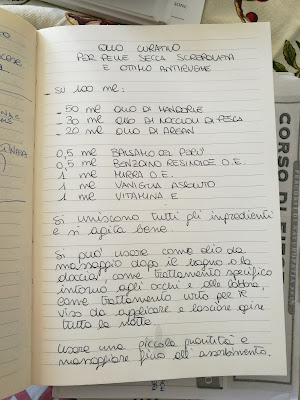 OLIO CURATIVO
PER PELLE SECCA SCREPOLATA
E OTTIMO ANTIRUGHE
SU 100 ml:
- 50 ml OLIO DI MANDORLE
- 30 ml OLIO DI NOCCIOLI DI PESCA
- 20 ml OLIO DI ARGAN
0,5 ml BALSAMO DEL PERÙ
0,5 ml BENZOINO RESINOIDE O.E.
1 ml MIRRA O.E.
1 ml VANIGLIA ASSOLUTO
1 ml VITAMINA E
Si uniscono tutti gli ingredienti
e si agita bene.
Si può usare come olio da
massaggio dopo il bagno o la
doccia, come trattamento specifico
intorno agli occhi e alle labbra,
come trattamento urto per il
viso da applicare e lasciare agire
tutta la notte.
Usare una piccola quantità e
massaggiare fino all'assorbimento.
CORSO DI